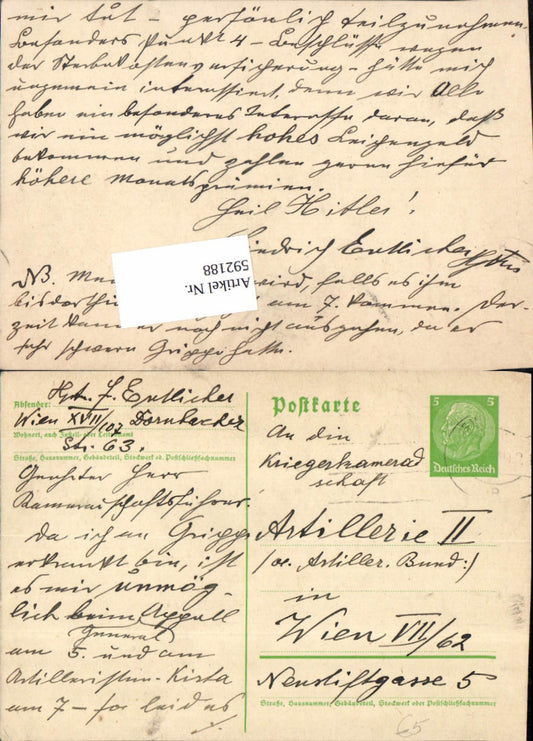 mir tut – persönlich teilzunehmen.
Besonders Punkt 4 – Beschlüsse wegen
der Sterbekostenversicherung – hätte mich
ungemein interessiert, denn wir Alle
haben ein besonderes Interesse daran, daß
wir ein möglichst hohes Leichengeld
bekommen und zahlen gerne hiefür
höhere Monatsprämien.
Heil Hitler!
Friedrich Entlicher
NB. wird, falls es ihm
bis dorthin am 7. kommen. Der-
zeit kann er noch nicht ausgehen, da er
sehr schwere Grippe hatte.
Artikel Nr.
592188
Absender: Hptm. F. Entlicher
Wien XVII/107 Dornbacher
Wohnort, auch Zustell- oder Leitpostamt
Str. 63.
Straße, Hausnummer, Gebäudeteil, Stockwerk od. Postschließfachnummer
Geehrter Herr
Kameradschaftsführer.
Da ich an Grippe
erkrankt bin, ist
es mir unmög-
lich beim Appell
General
am 5. und am
Artilleristen-Kirta
am 7 – so leid es
./.
Postkarte
5 5
Deutsches Reich
An die
Kriegerkamerad
schaft
Artillerie II
(oe. Artiller. Bund:)
in
Wien VII/62
Neustiftgasse 5
Straße, Hausnummer, Gebäudeteil, Stockwerk oder Postschließfachnummer
65